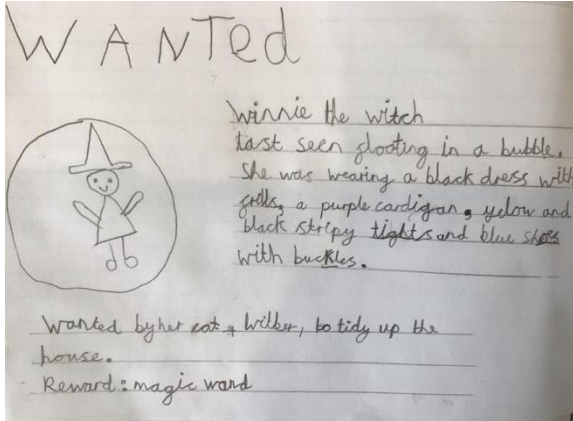 WANTed
Winnie the witch
Last seen glooting in a bubble.
She was wearing a black dress with
frills, a purple cardigan, yelow and
black stripy tights and blue shoes
with buckles.
Wanted by her cat, Wilber, to tidy up the
house.
Reward: magic wand